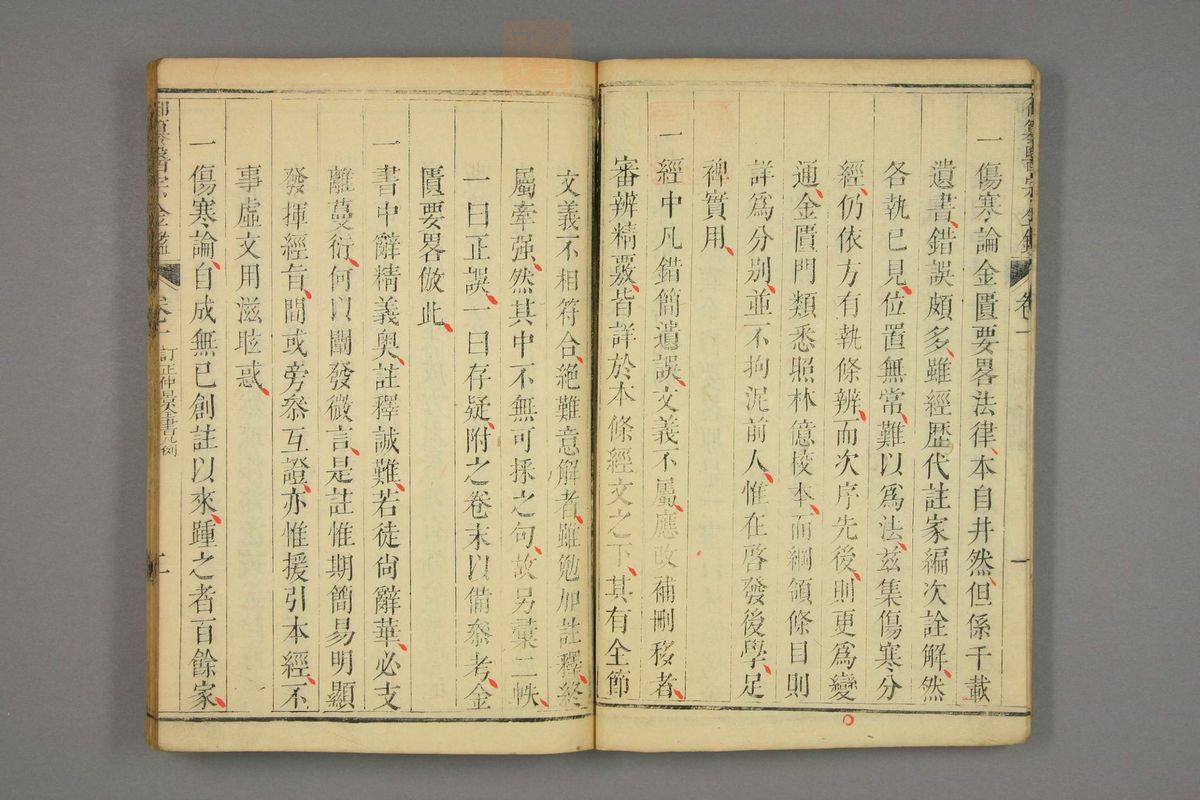 一傷寒論金匱要畧法律本自井然但係千載
遺書錯誤頗多雖經歷代註家編次詮解然
各執已見位置無常難以爲法茲集傷寒分
經仍依方有執條辨而次序先後則更爲變
通金匱門類悉照林億校本而綱領條目則
詳爲分別並不拘泥前人惟在啓發後學足
裨實用
一經中凡錯簡遺誤文義不屬應改補刪移者
審辨精覈皆詳於本條經文之下其有全節
文義不相符合絶難意解者雖勉加註釋終
屬牽强然其中不無可採之句故另彙二帙
一曰正誤一曰存疑附之卷末以備叅考金
匱要畧倣此
一書中辭精義奥註釋誠難若徒尙辭華必支
離蔓衍何以闡發微言是註惟期簡易明顯
發揮經旨間或旁叅互證亦惟援引本經不
事虛文用滋眩惑
一傷寒論自成無已創註以來踵之者百餘家
御纂醫宗金鑑
卷一
訂正仲景全書凡例
二